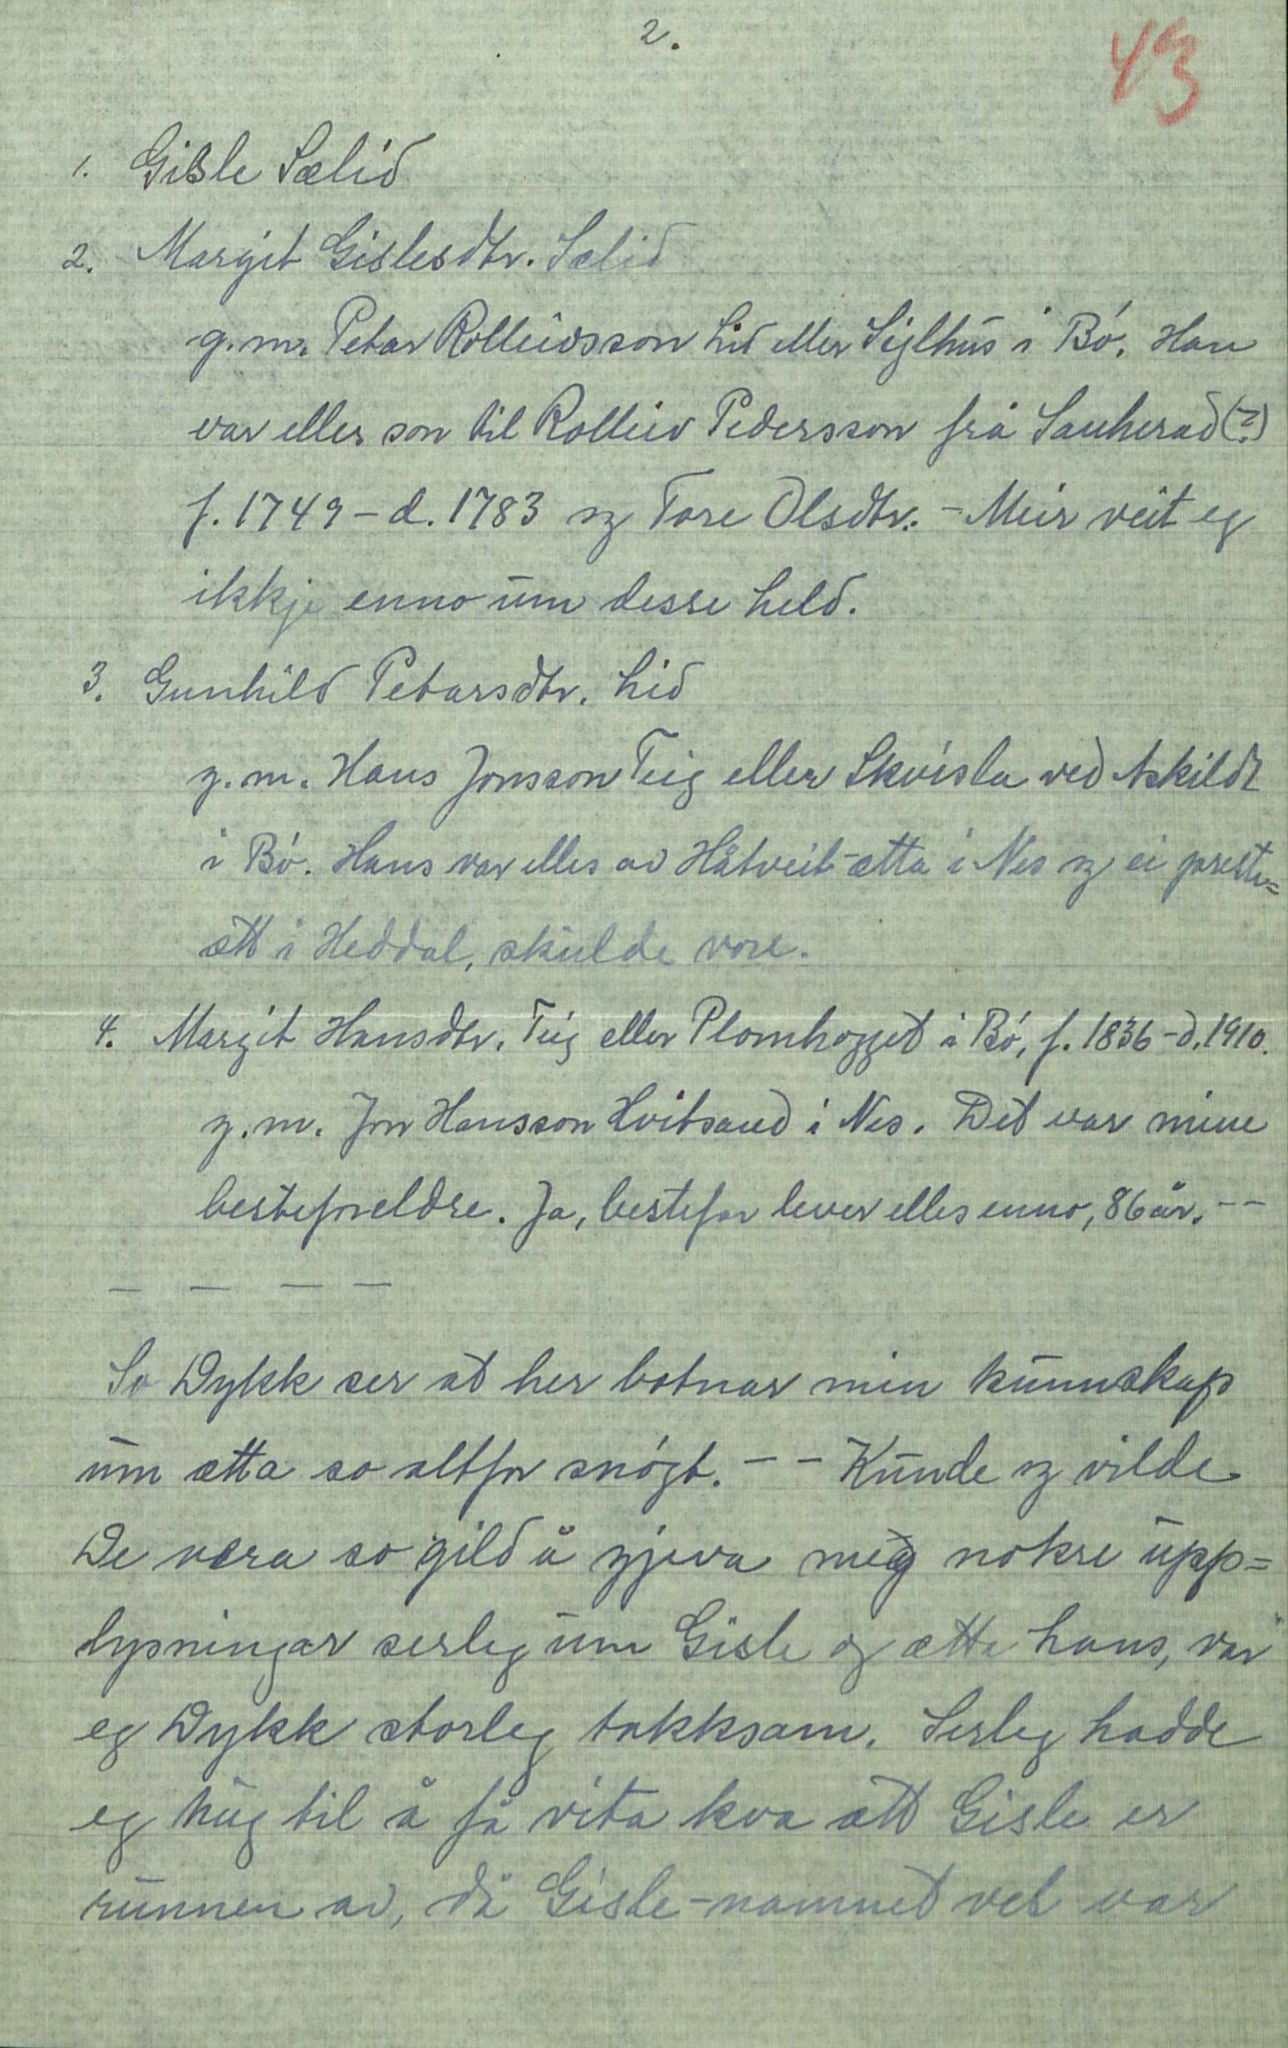 2.
43
1. Gisle Sælid
2. Margit Gislesdtr. Sælid
g.m. Petar Rolleivsson Lid eller Siglhus i Bø. Han
var elles son til Rolleiv Pedersson frå Sauherad (?)
f. 1749 – d. 1783 og Tore Olsdtr. – Meir veit eg
ikkje enno um desse held.
3. Gunhild Petarsdtr. Lid
g.m. Hans Jonsson Teig eller Skvisla ved Askildt
i Bø. Hans var elles av Håtveit-ætta i Nes og ei preste=
ætt i Heddal, skulde vore.
4. Margit Hansdtr. Teig eller Plomhogget i Bø, f. 1836 – d. 1910.
g.m. Jon Hansson Hvitsand i Nes. Det var mine
besteforeldre. Ja, bestefar lever elles enno, 86 år. – –
– – – –
So Dykk ser at her botnar min kunnskap
um ætta so altfor snøgt. – – Kunde og vilde
De vera so gild å gjeva meg nokre upp=
lysningar serleg um Gisle og ætta hans, var
eg Dykk storleg takksam. Serleg hadde
eg hug til å få vita kva ætt Gisle er
runnen av, då Gisle-namnet vel var